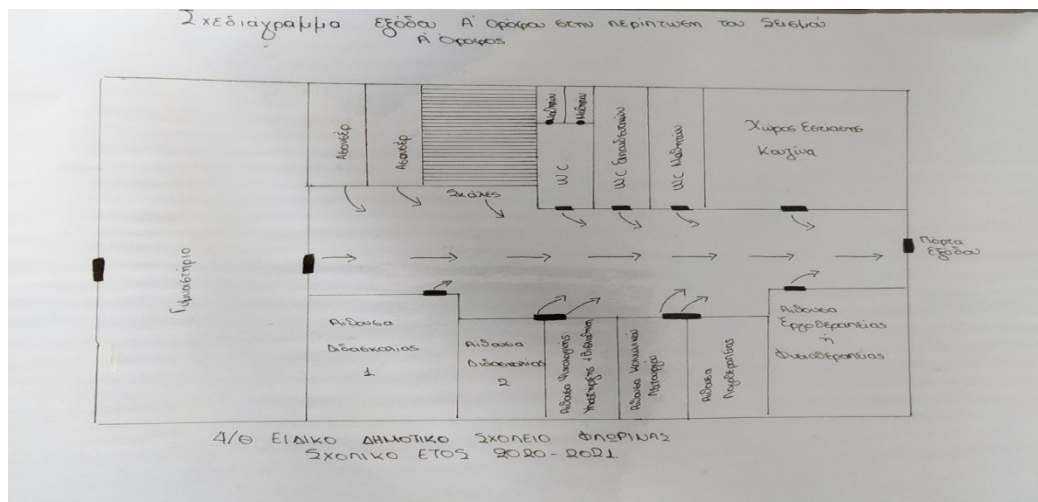 Σχεδιάγραμμα εξόδου Α' ορόφου στην περίπτωση του σεισμού
Α' Όροφος
Ασανσέρ
Ασανσέρ
Σκάλες
Μαθητών
Μαθητών
WC
WC Εκπαιδευτικών
WC Μαθητών
Χώρος Εστίασης
Κουζίνα
Γυμναστήριο
Πόρτα
Εξόδου
Αίθουσα
Διδασκαλίας
1
Αίθουσα
Διδασκαλίας
2
Αίθουσα Ψυχολογικής
Υποστήριξης
Αίθουσα Κοινωνικού
Λειτουργού
Αίθουσα
Λογοθεραπείας
Αίθουσα
Εργοθεραπείας
ή
Φυσιοθεραπείας
4/Θ ΕΙΔΙΚΟ ΔΗΜΟΤΙΚΟ ΣΧΟΛΕΙΟ ΦΛΩΡΙΝΑΣ
ΣΧΟΛΙΚΟ ΕΤΟΣ 2020-2021